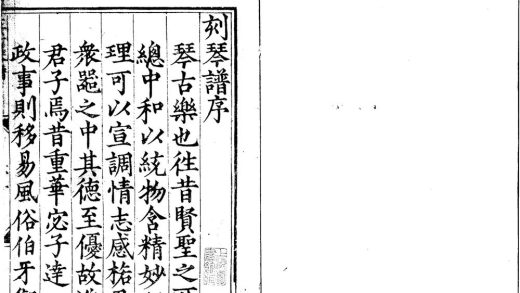 刻琴譜序
琴古樂也徃昔賢聖之
總中和以統物含精妙
理可以宣調情志感
衆噐之中其德至優故
君子焉昔重華宓子達
政事則移易風俗伯牙